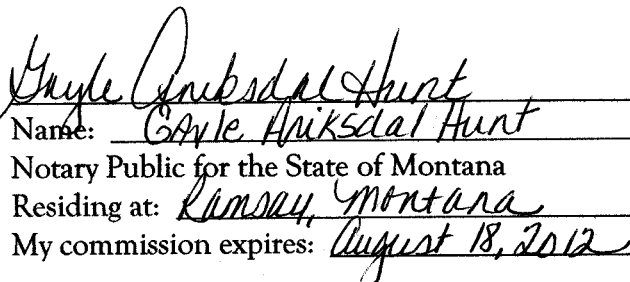 Gayle Aniksdal Hunt
Name: GAyle Aniksdal Hunt
Notary Public for the State of Montana
Residing at: Ramsay, Montana
My commission expires: August 18, 2012